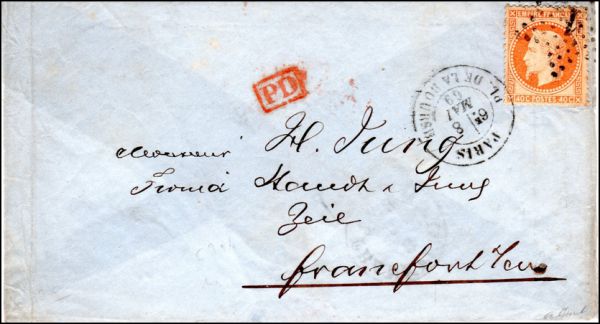 EMPIRE FRANÇAIS
40C POSTES 40C
1
PD
PARIS
PL. DE LA BOURSE
6E
8
MAI
69
H. Jung
Monsieur
Handt & Jung
Zeil
Francfort s/m